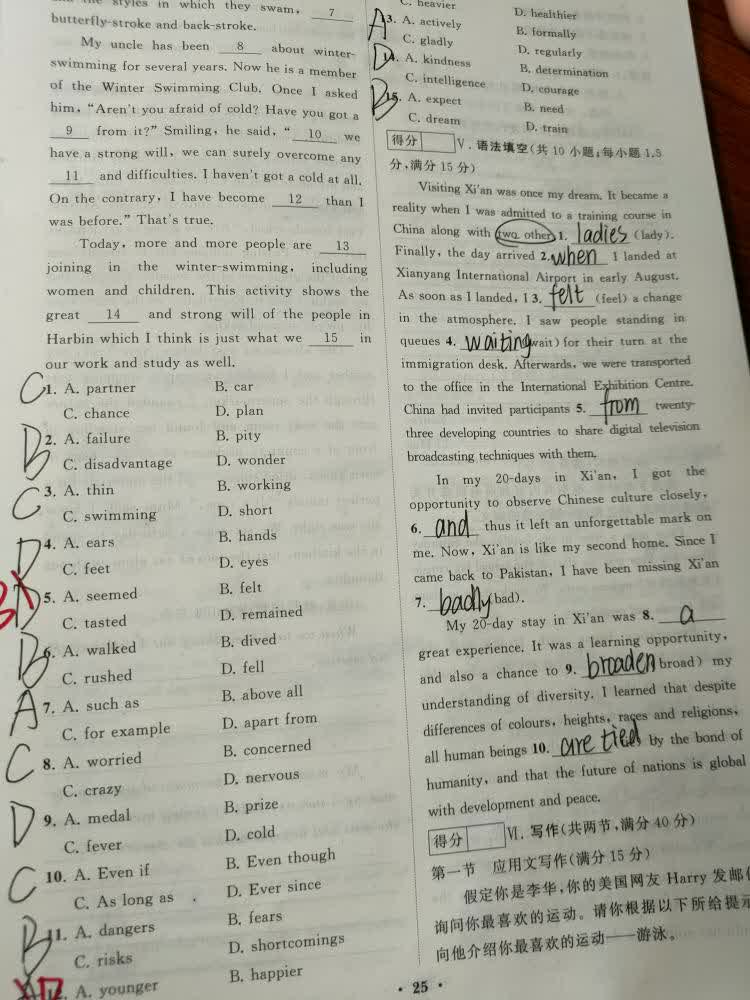 the styles in which they swam, 7
butterfly-stroke and back-stroke.
My uncle has been 8 about winter-
swimming for several years. Now he is a member
of the Winter Swimming Club. Once I asked
him, “Aren't you afraid of cold? Have you got a
9 from it?” Smiling, he said, “ 10 we
have a strong will, we can surely overcome any
11 and difficulties. I haven't got a cold at all.
On the contrary, I have become 12 than I
was before.” That's true.
Today, more and more people are 13
joining in the winter-swimming, including
women and children. This activity shows the
great 14 and strong will of the people in
Harbin which I think is just what we 15 in
our work and study as well.
C 1. A. partner B. car
C. chance D. plan
B 2. A. failure B. pity
C. disadvantage D. wonder
C 3. A. thin B. working
C. swimming D. short
D 4. A. ears B. hands
C. feet D. eyes
B D 5. A. seemed B. felt
C. tasted D. remained
B 6. A. walked B. dived
C. rushed D. fell
A 7. A. such as B. above all
C. for example D. apart from
C 8. A. worried B. concerned
C. crazy D. nervous
D 9. A. medal B. prize
C. fever D. cold
C 10. A. Even if B. Even though
C. As long as D. Ever since
B 11. A. dangers B. fears
C. risks D. shortcomings
A. younger B. happier
C. heavier D. healthier
A 13. A. actively B. formally
C. gladly D. regularly
D 14. A. kindness B. determination
C. intelligence D. courage
B 15. A. expect B. need
C. dream D. train
得分 Ⅴ. 语法填空(共 10 小题;每小题 1.5
分,满分 15 分)
Visiting Xi'an was once my dream. It became a
reality when I was admitted to a training course in
China along with two other 1. ladies (lady).
Finally, the day arrived 2. when I landed at
Xianyang International Airport in early August.
As soon as I landed, I 3. felt (feel) a change
in the atmosphere. I saw people standing in
queues 4. waiting (wait) for their turn at the
immigration desk. Afterwards, we were transported
to the office in the International Exhibition Centre.
China had invited participants 5. from twenty-
three developing countries to share digital television
broadcasting techniques with them.
In my 20-days in Xi'an, I got the
opportunity to observe Chinese culture closely,
6. and thus it left an unforgettable mark on
me. Now, Xi'an is like my second home. Since I
came back to Pakistan, I have been missing Xi'an
7. badly (bad).
My 20-day stay in Xi'an was 8. a
great experience. It was a learning opportunity,
and also a chance to 9. broaden (broad) my
understanding of diversity. I learned that despite
differences of colours, heights, races and religions,
all human beings 10. are tied by the bond of
humanity, and that the future of nations is global
with development and peace.
得分 Ⅵ. 写作(共两节,满分 40 分)
第一节 应用文写作(满分 15 分)
假定你是李华,你的美国网友 Harry 发邮
询问你最喜欢的运动。请你根据以下所给提示
向他介绍你最喜欢的运动——游泳。
· 25 ·